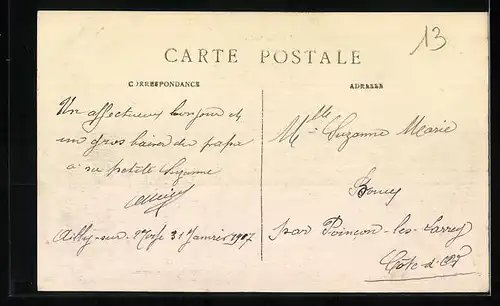 13
CARTE POSTALE
CORRESPONDANCE
Un affectueux bonjour et
un gros baiser de papa
à sa petite Suzanne
Ailly-sur-Noye 31 Janvier 1907
ADRESSE
Mlle Suzanne Marie
par Poinçon-les-Larrey
Côte-d'Or